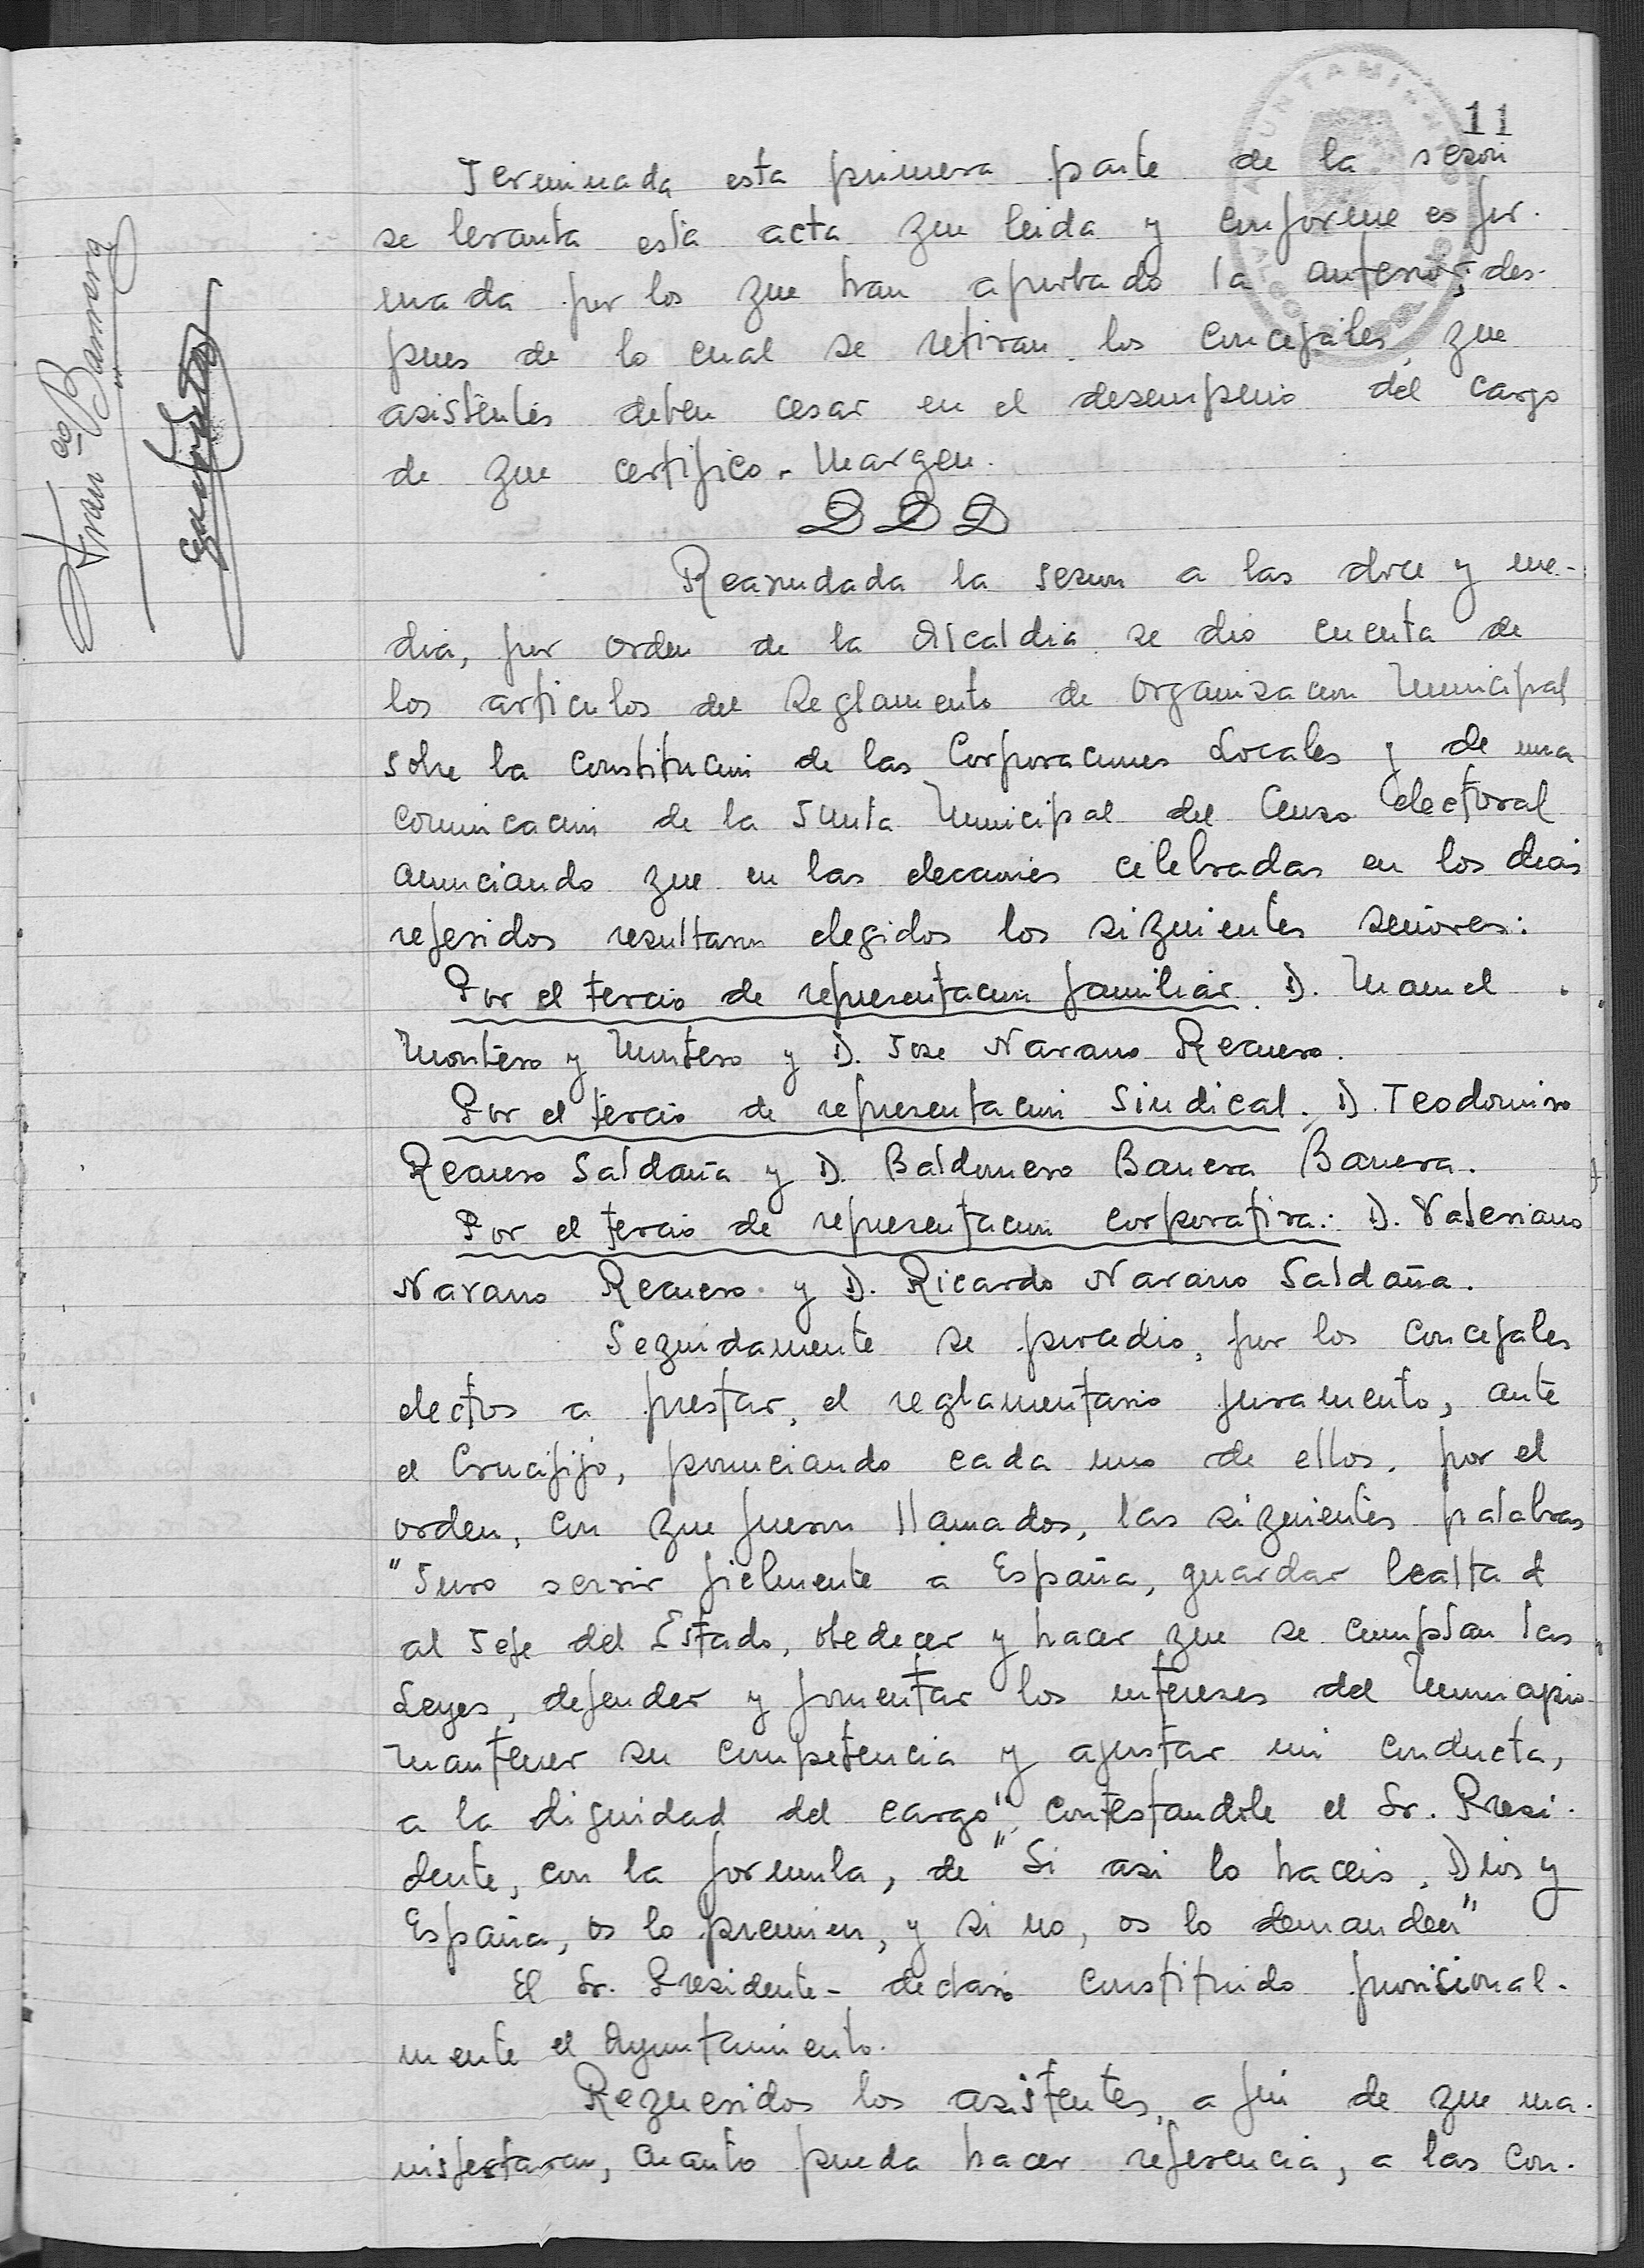 11
Terminada esta primera parte de la sesion
se levanta esta acta que leida y conforme es fir-
mada por los que han aportado la anterior, des-
pues de lo cual se retiran los concejales, que
asistentes deben cesar en el desempeño del cargo
de que certifico. Margen.
Reanudada la sesion a las doce y me-
dia, por orden de la Alcaldia se dio cuenta de
los articulos del Reglamento de Organizacion Municipal
sobre la constitucion de las Corporaciones Locales y de una
comunicacion de la Junta Municipal del Censo electoral
anunciando que en las elecciones celebradas en los dias
referidos resultaron elegidos los siguientes señores:
Por el tercio de representacion familiar. D. Manuel
Montero y Montero y D. Jose Navarro Recuero.
Por el tercio de representacion Sindical. D. Teodomiro
Recuero Saldaña y D. Baldomero Barrera Barrera.
Por el tercio de representacion corporativa: D. Valeriano
Navarro Recuero y D. Ricardo Navarro Saldaña.
Seguidamente se procedio, por los concejales
electos a prestar, el reglamentario juramento, ante
el Crucifijo, pronunciando cada uno de ellos, por el
orden, con que fueron llamados, las siguientes palabras
"Juro servir fielmente a España, guardar lealtad
al Jefe del Estado, obedecer y hacer que se cumplan las
Leyes, defender y fomentar los intereses del Municipio
mantener su competencia y ajustar mi conducta,
a la dignidad del cargo", contestandole el Sr. Presi-
dente, con la formula, de "Si asi lo haceis, Dios y
España, os lo premien, y si no, os lo demanden"
El Sr. Presidente - declaró constituido provisional-
mente el Ayuntamiento.
Requeridos los asistentes, a fin de que ma-
nisfestaran, cuanto pueda hacer referencia, a las con-
Franco Barrera